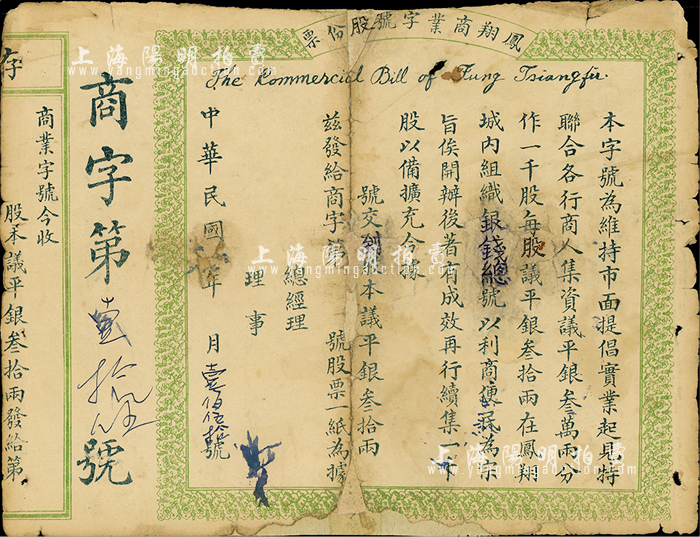 鳳翔商業字號股份票
The Commercial Bill of Fung Tsiangfu.
本字號為維持市面提倡實業起見特
聯合各行商人集資議平銀叁萬兩分
作一千股每股議平銀叁拾兩在鳳翔
城内組織銀錢總號以利商便民為宗
旨俟開辦後著有成效再行續集一千
股以備擴充今據
號交到本議平銀叁拾兩
茲發給商字第 號股票一紙為據
總經理
理事
中華民國 年 月 號
商字第壹拾 號
存
商業字號今收
股本議平銀叁拾兩發給第
上海陽明拍賣
www.yangmingauction.com
上海陽明拍賣
www.yangmingauction.com
上海陽明拍賣
www.yangmingauction.com
上海陽明拍賣
www.yangmingauction.com